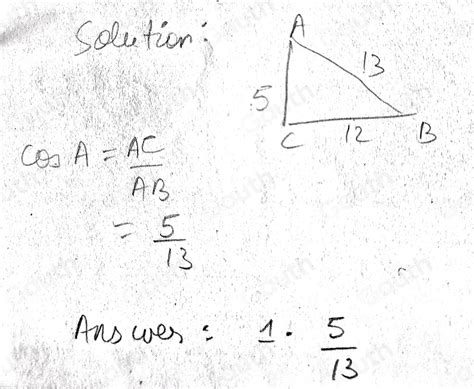 Solution:
A
13
5
C 12 B
cos A = AC/AB
= 5/13
Answer: 1. 5/13